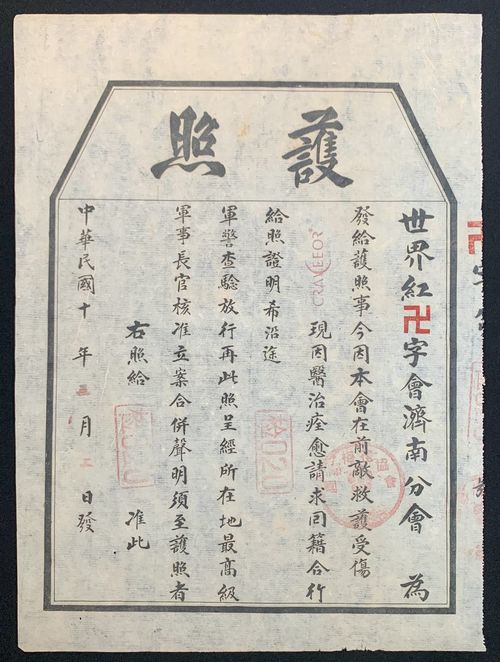 護照
世界紅卍字會濟南分會 為
發給護照事今因本會在前敵救護受傷
現因醫治痊愈請求回籍合行
給照證明希沿途
軍警查驗放行再此照呈經所在地最高級
軍事長官核准立案合併聲明須至護照者
右照給 准此
中華民國十 年 三 月 二 日發